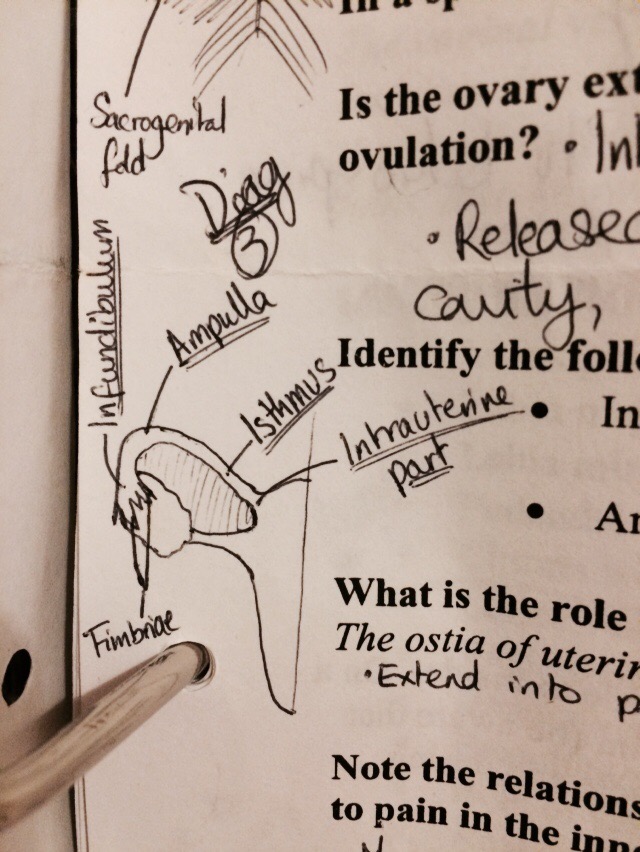 In a sp
Sacrogenital
fold
Is the ovary ext
ovulation? • Int
Diag
3
• Released
cavity,
Infundibulum
Ampulla
Isthmus
Identify the foll
Intrauterine
part
• In
• An
Fimbriae
What is the role
The ostia of uterin
• Extend into p
Note the relations
to pain in the inn